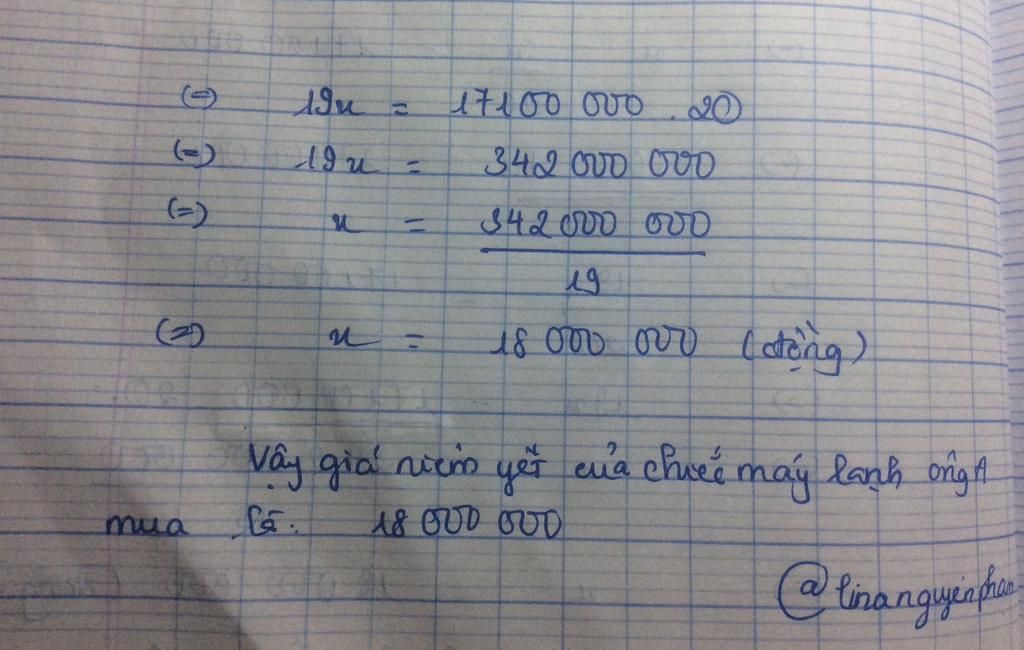 (=) 19x = 17100 000 . 20
(=) 19x = 342 000 000
(=) x = 342 000 000
19
(=) x = 18 000 000 (đồng)
Vậy giá niêm yết của chiếc máy lạnh ông A
mua là: 18 000 000
@linanguyenphan